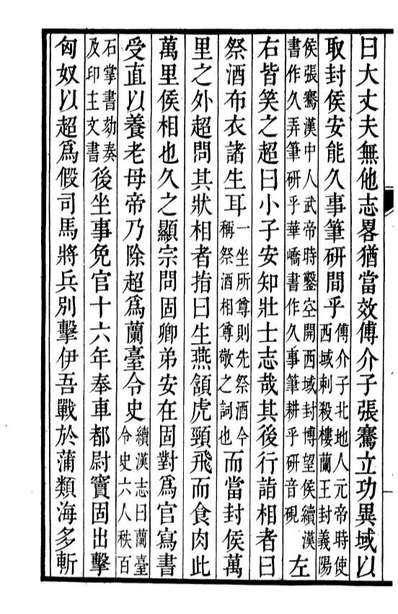 曰大丈夫無他志畧猶當效傅介子張騫立功異域以
取封侯安能久事筆研間乎傅介子北地人元帝時使西域刺殺樓蘭王封義陽
侯張騫漢中人武帝時鑿空開西域封博望侯續漢書作久弄筆研乎華嶠書作久事筆耕乎研音硯左
右皆笑之超曰小子安知壯士志哉其後行詣相者曰
祭酒布衣諸生耳一坐所尊則先祭酒今稱祭酒相尊敬之詞也而當封侯萬
里之外超問其狀相者指曰生燕頷虎頸飛而食肉此
萬里侯相也久之顯宗問固卿弟安在固對爲官寫書
受直以養老母帝乃除超爲蘭臺令史續漢志曰蘭臺令史六人秩百
石掌書劾奏及印主文書後坐事免官十六年奉車都尉竇固出擊
匈奴以超爲假司馬將兵別擊伊吾戰於蒲類海多斬